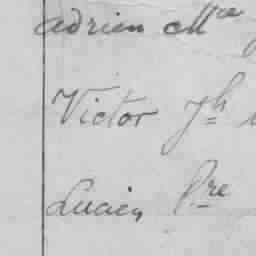 adrien Mce
Victor Jh
Lucien Pre